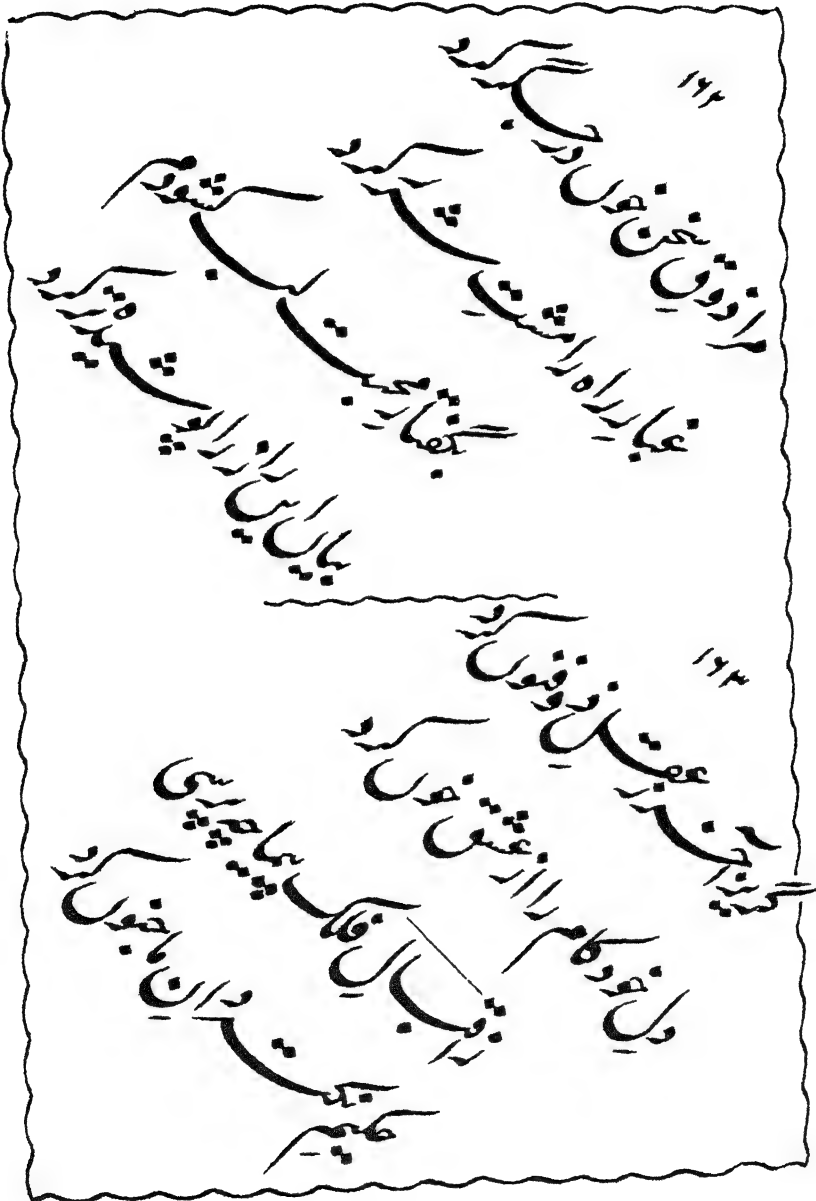 ۱۶۲
مرا ذوقِ سخن خوں در جگر کرد
غبارِ راہ را مشتِ شرر کرد
بگفتارِ محبت لب کشودم
بیاں ایں راز را پوشیدہ تر کرد
۱۶۳
گریز آخر ز عقلِ ذوفنوں کرد
دلِ خود کام را از عشق خوں کرد
ز اقبالِ فلک پیما چہ پرسی
حکیمِ نکتہ دانِ ما جنوں کرد